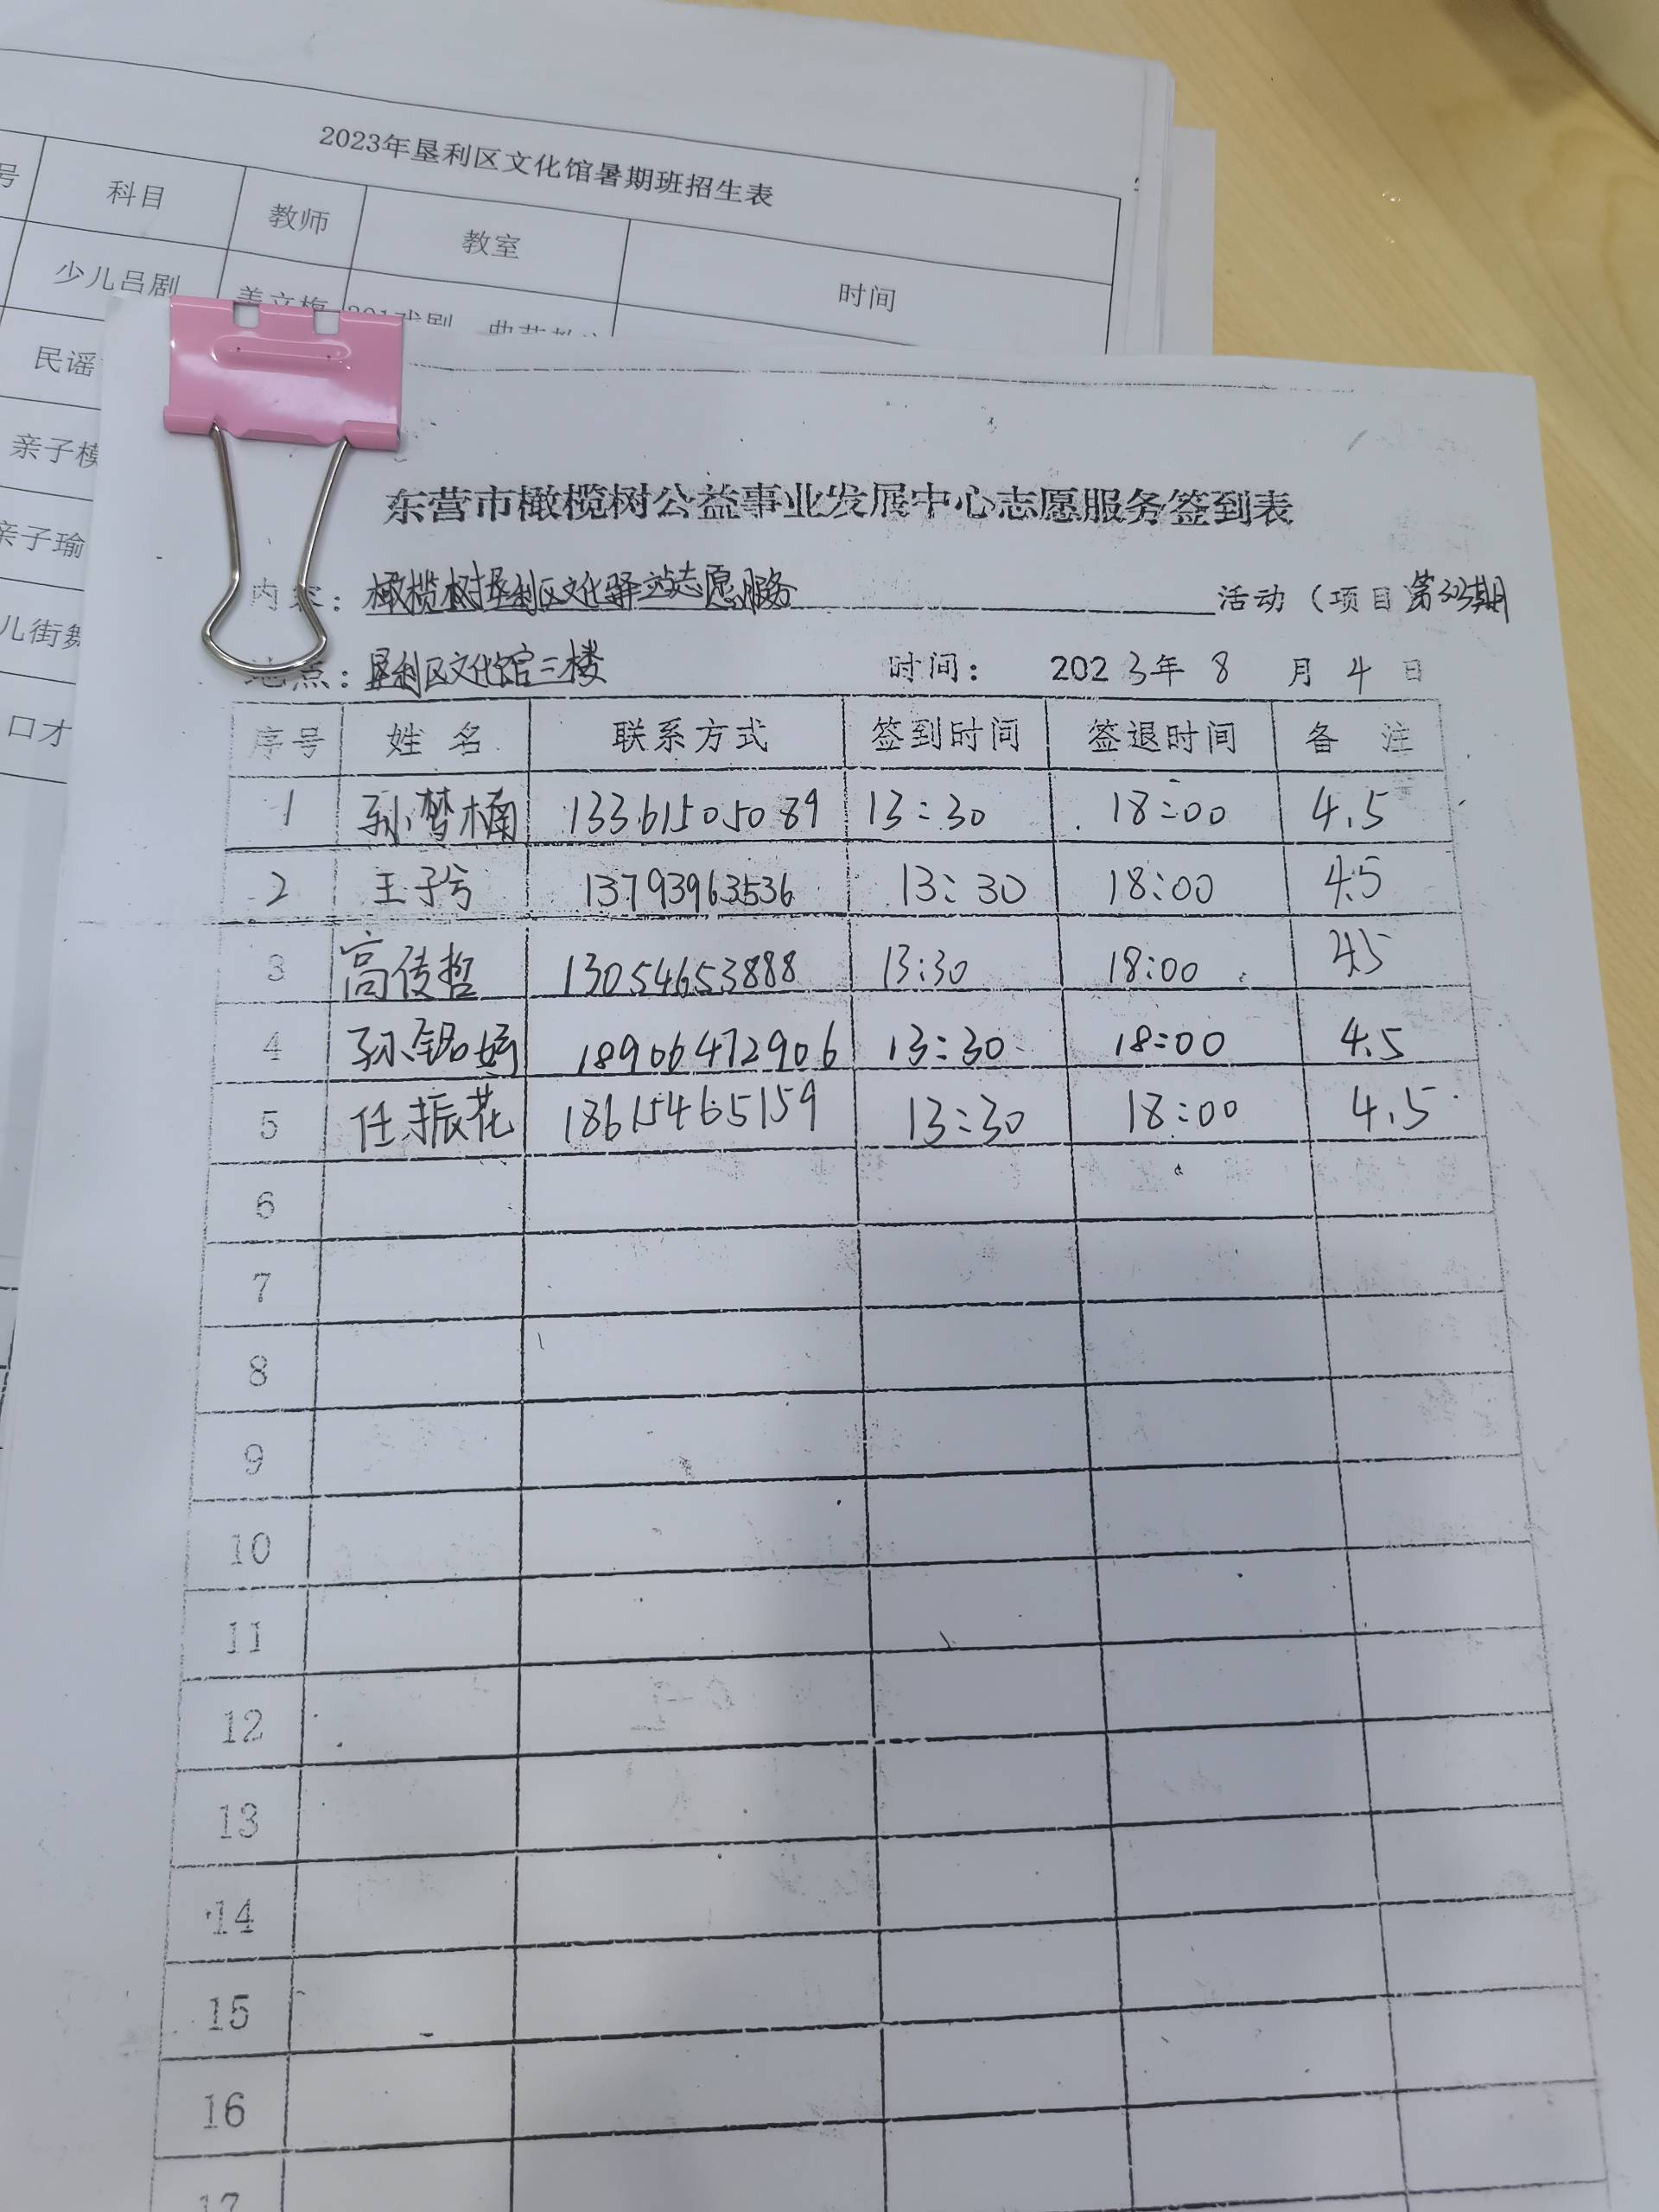 2023年垦利区文化馆暑期班招生表
号 科目 教师 教室 时间
少儿吕剧
民谣
亲子模
亲子瑜
儿街舞
口才
东营市橄榄树公益事业发展中心志愿服务签到表
内容：橄榄树垦利区文化驿站志愿服务 活动（项目 第33期
地点：垦利区文化馆三楼 时间： 2023年 8 月 4 日
序号 姓名 联系方式 签到时间 签退时间 备注
1 孙梦楠 13361505089 13:30 18:00 4.5
2 王子兮 13793963536 13:30 18:00 4.5
3 高传哲 13054653888 13:30 18:00 4.5
4 孙 18906472906 13:30 18:00 4.5
5 任振花 18615465159 13:30 18:00 4.5
6
7
8
9
10
11
12
13
14
15
16
17